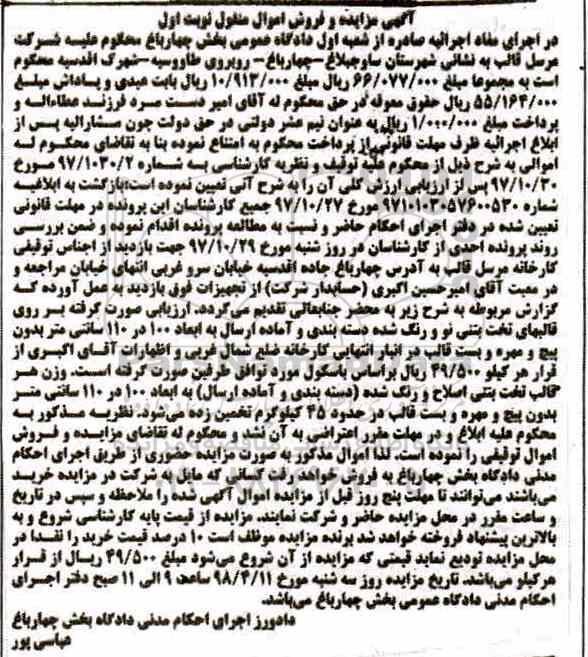 آگهی مزایده و فروش اموال منقول نوبت اول
در اجرای مفاد اجرائیه صادره از شعبه اول دادگاه عمومی بخش چهارباغ محکوم علیه شرکت
مرسل قالب به نشانی شهرستان ساوجبلاغ -چهارباغ- روبروی طاووسیه -شهرک اقدسیه محکوم
است به مجموعا مبلغ ۶۶/۰۷۷/۰۰۰ ریال مبلغ ۱۰/۹۱۳/۰۰۰ ریال بابت عیدی و پاداش مبلغ
۵۵/۱۶۴/۰۰۰ ریال حقوق معوقه در حق محکوم له آقای امیر دست مرد فرزند عطاءاله و
پرداخت مبلغ ۱/۰۰۰/۰۰۰ ریال به عنوان نیم عشر دولتی در حق دولت چون مشارالیه پس از
ابلاغ اجرائیه ظرف مهلت قانونی از پرداخت محکوم به امتناع نموده بنا به تقاضای محکوم له
اموالی به شرح ذیل از محکوم علیه توقیف و نظریه کارشناسی به شماره ۹۷/۱۰۳۰/۲ مورخ
۹۷/۱۰/۳۰ پس از ارزیابی ارزش کلی آن را به شرح آتی تعیین نموده است: بازگشت به ابلاغیه
شماره ۹۷۱۰۱۰۳۰۵۷۶۰۰۵۳۰ مورخ ۹۷/۱۰/۲۷ جمیع کارشناسان این پرونده در مهلت قانونی
تعیین شده در دفتر اجرای احکام حاضر و نسبت به مطالعه پرونده اقدام نموده و ضمن بررسی
روند پرونده احدی از کارشناسان در روز شنبه مورخ ۹۷/۱۰/۲۹ جهت بازدید از اجناس توقیفی
کارخانه مرسل قالب به آدرس چهارباغ جاده اقدسیه خیابان سرو غربی انتهای خیابان مراجعه و
در معیت آقای امیرحسین اکبری (حسابدار شرکت) از تجهیزات فوق بازدید به عمل آورده که
گزارش مربوطه به شرح زیر به محضر جنابعالی تقدیم می‌گردد. ارزیابی صورت گرفته بر روی
قالبهای تخت بتنی نو و رنگ شده دسته بندی و آماده ارسال به ابعاد ۱۰۰ در ۱۱۰ سانتی متر بدون
پیچ و مهره و بست قالب در انبار انتهایی کارخانه ضلع شمال غربی و اظهارات آقای اکبری از
قرار هر کیلو ۴۹/۵۰۰ ریال براساس باسکول مورد توافق طرفین صورت گرفته است. وزن هر
قالب تخت بتنی اصلاح و رنگ شده (دسته بندی و آماده ارسال) به ابعاد ۱۰۰ در ۱۱۰ سانتی متر
بدون پیچ و مهره و بست قالب در حدود ۴۵ کیلوگرم تخمین زده می‌شود. نظریه مذکور به
محکوم علیه ابلاغ و در مهلت مقرر اعتراضی به آن نشد و محکوم له تقاضای مزایده و فروش
اموال توقیفی را نموده است. لذا اموال مذکور به صورت مزایده حضوری از طریق اجرای احکام
مدنی دادگاه بخش چهارباغ به فروش می‌رسد کسانی که مایل به شرکت در مزایده خرید
می‌باشند می‌توانند تا مهلت پنج روز قبل از مزایده اموال آگهی شده را ملاحظه و سپس در تاریخ
و ساعت مقرر در محل مزایده حاضر و شرکت نمایند. مزایده از قیمت پایه کارشناسی شروع و به
بالاترین پیشنهاد فروخته خواهد شد برنده مزایده موظف است ۱۰ درصد قیمت خرید را نقدا در
محل مزایده تودیع نماید قیمتی که مزایده از آن شروع می‌شود مبلغ ۴۹/۵۰۰ ریال از قرار
هرکیلو می‌باشد. تاریخ مزایده روز سه شنبه مورخ ۹۸/۴/۱۱ ساعت ۹ الی ۱۱ صبح دفتر اجرای
احکام مدنی دادگاه عمومی بخش چهارباغ می‌باشد.
دادورز اجرای احکام مدنی دادگاه بخش چهارباغ
عباسی پور